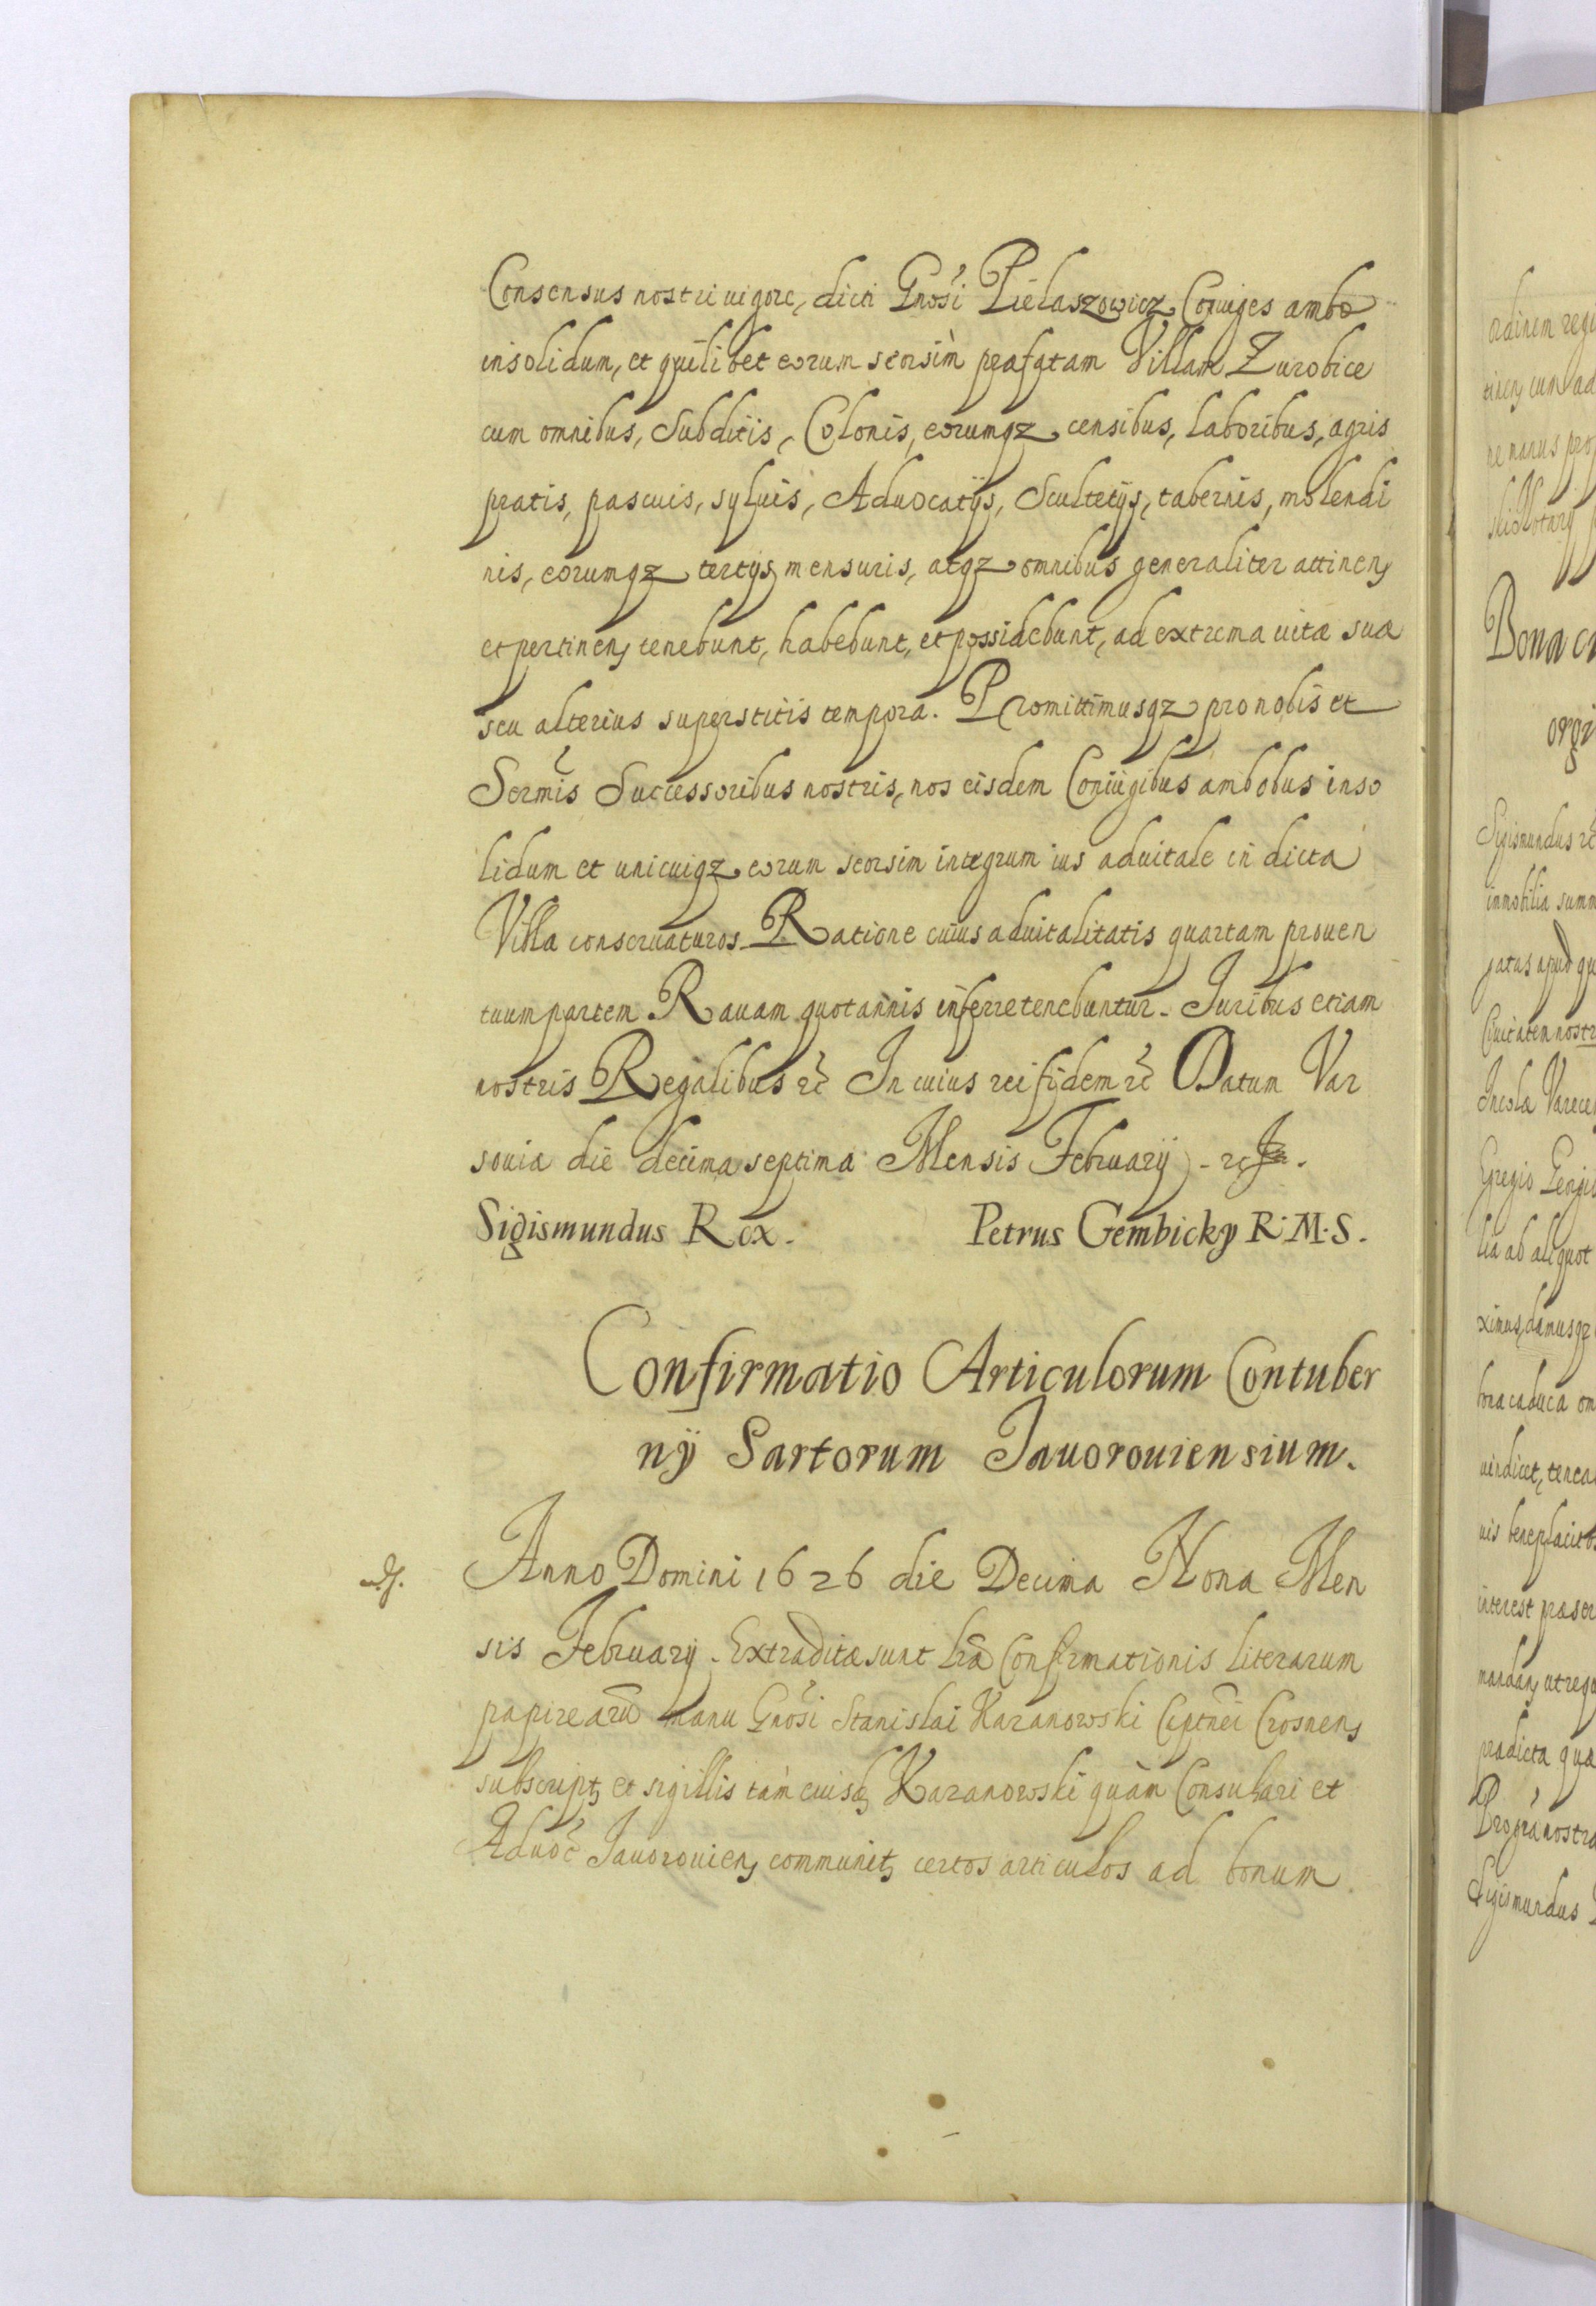 Consensus nostri uigore, dicti Gnosi Pielaszowicz Coniuges ambo
insolidum, et quilibet eorum seorsim prafatam Villam Zurobice
cum omnibus, Subditis, Colonis, eorumqz censibus, laboribus, agris
pratis, pascuis, syluis, Aduocatijs, Scultetijs, tabernis, molendi
nis, eorumqz tertijs mensuris, atqz omnibus generaliter attinen
et pertinen tenebunt, habebunt, et possidebunt, ad extrema uitæ suæ
seu alterius superstitis tempora. Promittimusqz pro nobis et
Sermis Successoribus nostris, nos eisdem Coniugibus ambobus inso
lidum et unicuiqz eorum seorsim integrum ius aduitale in dicta
Villa conseruaturos. Ratione cuius aduitalitatis quartam prouen
tuum partem Rauam quotannis inferre tenebuntur. Juribus etiam
nostris Regalibus etc In cuius rei fidem etc Datum Var
souiæ die decima septima Mensis February
Sigismundus Rex. Petrus Gembicky R.M.S.
Confirmatio Articulorum Contuber
nij Sartorum Jauorouiensium.
Anno Domini 1626 die Decima Nona Men
sis February. Extraditæ sunt lræ Confirmationis literarum
papirearū manu Gnosi Stanislai Kazanowski Captnei Crosnen
subscript et sigillis tam eiusd Kazanowski quàm Consulari et
Aduoc Jauorouien communit certos articulos ad bonum
ordinem
tinen cum ad
Bona ca
Sigismundus etc
immobilia summ
gatus apud qu
Ciuitatem nostr
Incolæ
Egregio
lia ab aliquot
ximus, damusqz
bona caduca om
uindicet, tenea
uis beneplacito
interest
mandan ut
prædicta quæ
Sigismundus